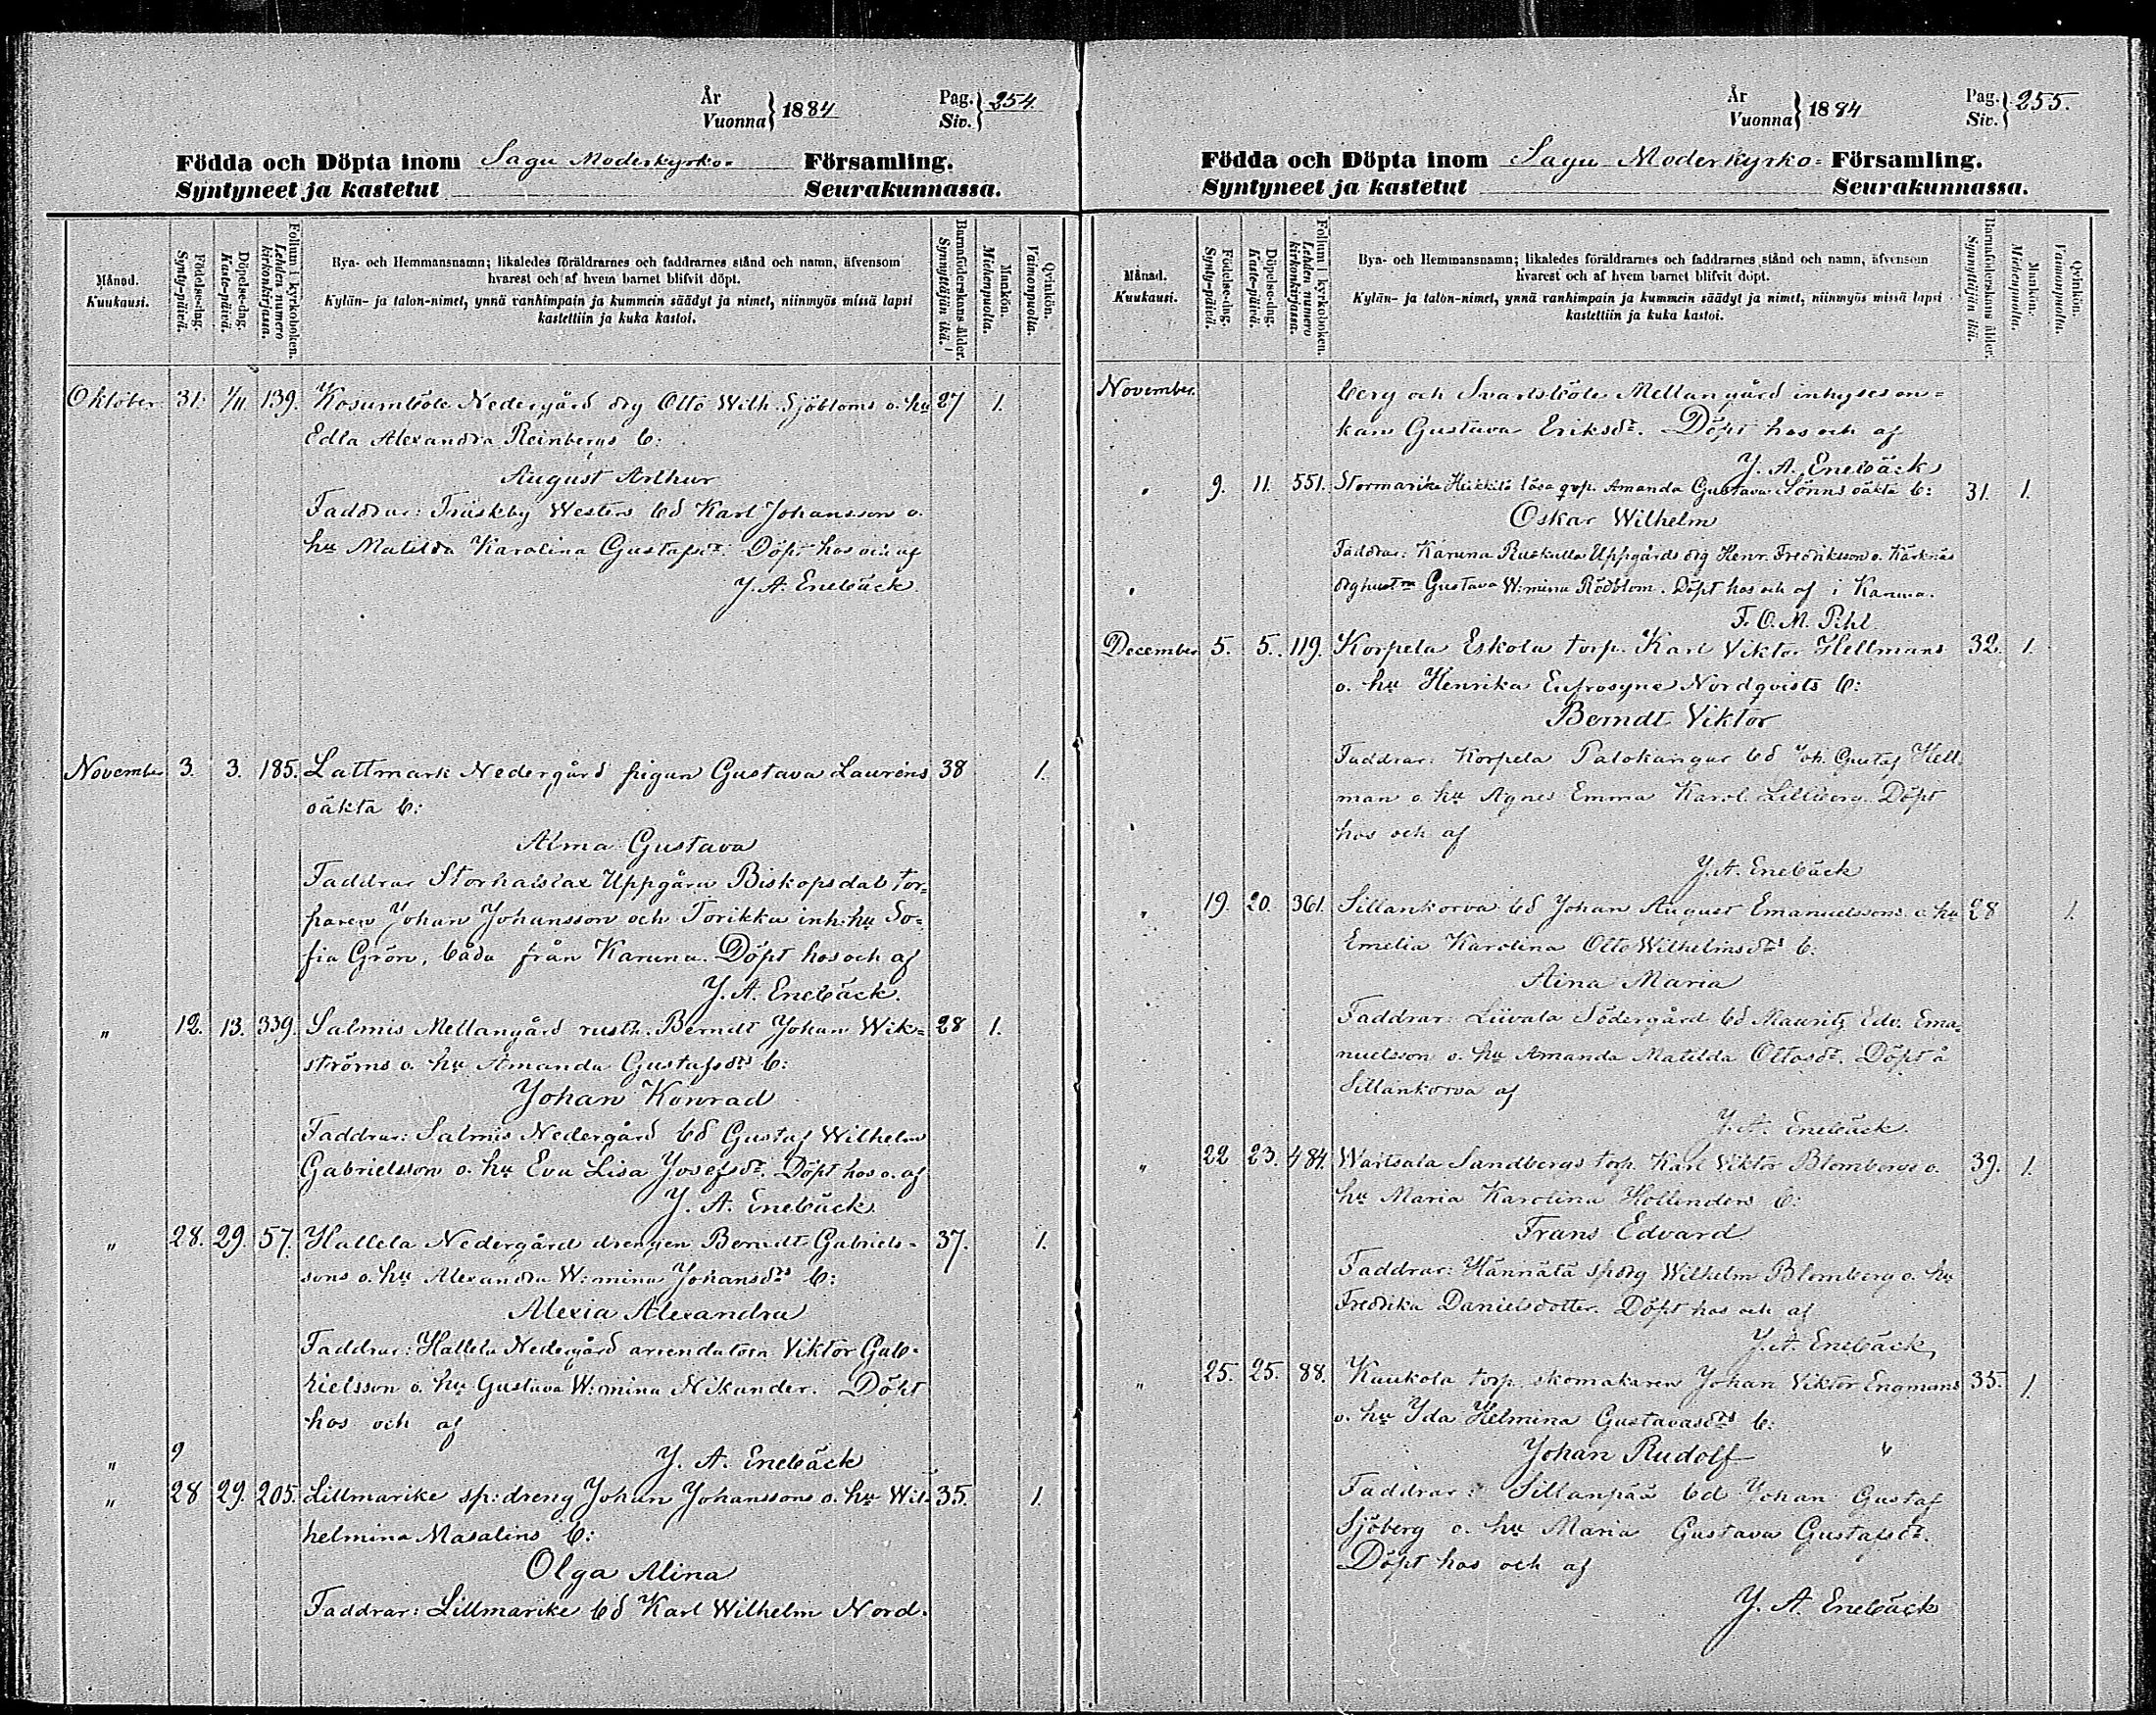 År
Vuonna} 1884
Pag.
Siv.} 254.
Födda och Döpta inom Sagu Moderkyrko- Församling.
Syntyneet ja kastetut Seurakunnassa.
Månad.
Kuukausi.
Födelse-dag.
Synty-päivä.
Döpelse-dag.
Kaste-päivä.
Folium i kyrkoboken.
Lehden numero
kirkonkirjassa.
Bya- och Hemmansnamn; likaledes föräldrarnes och faddrarnes stånd och namn, äfvensom
hvarest och af hvem barnet blifvit döpt.
Kylän- ja talon-nimet, ynnä vanhimpain ja kummein säädyt ja nimet, niinmyös missä lapsi
kastettiin ja kuka kastoi.
Barnaföderskans ålder.
Synnyttäjän ikä.
Mankön.
Miehenpuolia.
Qvinkön.
Vaimonpuolia.
Oktober 31. 1/11. 139. Kosumböle Nedergård drg Otto Wilh. Sjöbloms o. hu 27 1.
Edla Alexandra Reinbergs b:
August Arthur
Faddrar: Träskby Westers bd Karl Johansson o.
hu Matilda Karolina Gustafsdr. Döpt hos och af
J. A. Enebäck.
November 3. 3. 185. Lattmark Nedergård pigan Gustava Lauréns 38 1.
oäkta b:
Alma Gustava
Faddrar Storhalslax Uppgård Biskopsdal tor-
paren Johan Johansson och Torikka inh: hu So-
fia Grön, båda från Karuna. Döpt hos och af
J. A. Enebäck.
" 12. 13. 339. Salmis Mellangård rusth. Berndt Johan Wik- 28 1.
ströms o. hu Amanda Gustafsdrs b:
Johan Konrad
Faddrar: Salmis Nedergård bd Gustaf Wilhelm
Gabrielsson o. hu Eva Lisa Josefsdr. Döpt hos o. af
J. A. Enebäck.
" 28. 29. 57. Hallela Nedergård drengen Berndt Gabriels- 37. 1.
sons o. hu Alexandra W:mina Johansdrs b:
Alexia Alexandra
Faddrar: Hallela Nedergård arrendatorn Viktor Gab-
rielsson o. hu Gustava W:mina Nikander. Döpt
hos och af
" 9 J. A. Enebäck
" 28 29. 205. Lillmarike sp: dreng Johan Johanssons o. hu Wil- 35. 1.
helmina Masalins b:
Olga Alina
Faddrar: Lillmarike bd Karl Wilhelm Nord-
År
Vuonna} 1884
Pag.
Siv.} 255.
Födda och Döpta inom Sagu Moderkyrko- Församling.
Syntyneet ja kastetut Seurakunnassa.
Månad.
Kuukausi.
Födelse-dag.
Synty-päivä.
Döpelse-dag.
Kaste-päivä.
Folium i kyrkoboken.
Lehden numero
kirkonkirjassa.
Bya- och Hemmansnamn; likaledes föräldrarnes och faddrarnes stånd och namn, äfvensom
hvarest och af hvem barnet blifvit döpt.
Kylän- ja talon-nimet, ynnä vanhimpain ja kummein säädyt ja nimet, niinmyös missä lapsi
kastettiin ja kuka kastoi.
Barnaföderskans ålder.
Synnyttäjän ikä.
Mankön.
Miehenpuolia.
Qvinkön.
Vaimonpuolia.
November. berg och Svartsböle Mellangård inhyses en-
kan Gustava Eriksdr. Döpt hos och af
J. A. Enebäck
" 9. 11. 551. Stormarike Heikkilä lösa qvp. Amanda Gustava Lönns oäkta b: 31. 1.
Oskar Wilhelm
Faddrar: Karuna Ruskulla Uppgårds drg Henr. Fredriksson o. Kärknäs
drghustrn Gustava W:mina Rödblom. Döpt hos och af i Karuna.
F. O. M. Pihl
December 5. 5. 119. Korpela Eskola torp. Karl Viktor Hellmans 32. 1.
o. hu Henrika Eufrosyne Nordqvists b:
Berndt Viktor
Faddrar: Korpela Palokangar bd Joh. Gustaf Hell-
man o. hu Agnes Emma Karol. Lillberg. Döpt
hos och af
J. A. Enebäck
" 19. 20. 361. Sillankorva bd Johan August Emanuelssons o. hu 28 1.
Emelia Karolina Otto Wilhelmsdrs b:
Aina Maria
Faddrar: Liivala Södergård bd Mauritz Edv. Ema-
nuelsson o. hu Amanda Matilda Ottosdr. Döpt å
Sillankorva af
J. A. Enebäck
" 22 23. 484. Wartsala Sandbergs torp. Karl Viktor Blombergs o. 39. 1.
hu Maria Karolina Hollenders b:
Frans Edvard
Faddrar: Hännätä spdrg Wilhelm Blomberg o. hu
Fredrika Danielsdotter. Döpt hos och af
J. A. Enebäck
" 25. 25. 88. Kaukola torp. skomakaren Johan Viktor Engmans 35. 1.
o. hu Ida Helmina Gustavasdrs b:
Johan Rudolf
Faddrar: Sillanpää bd Johan Gustaf
Sjöberg o. hu Maria Gustava Gustafsdr.
Döpt hos och af
J. A. Enebäck